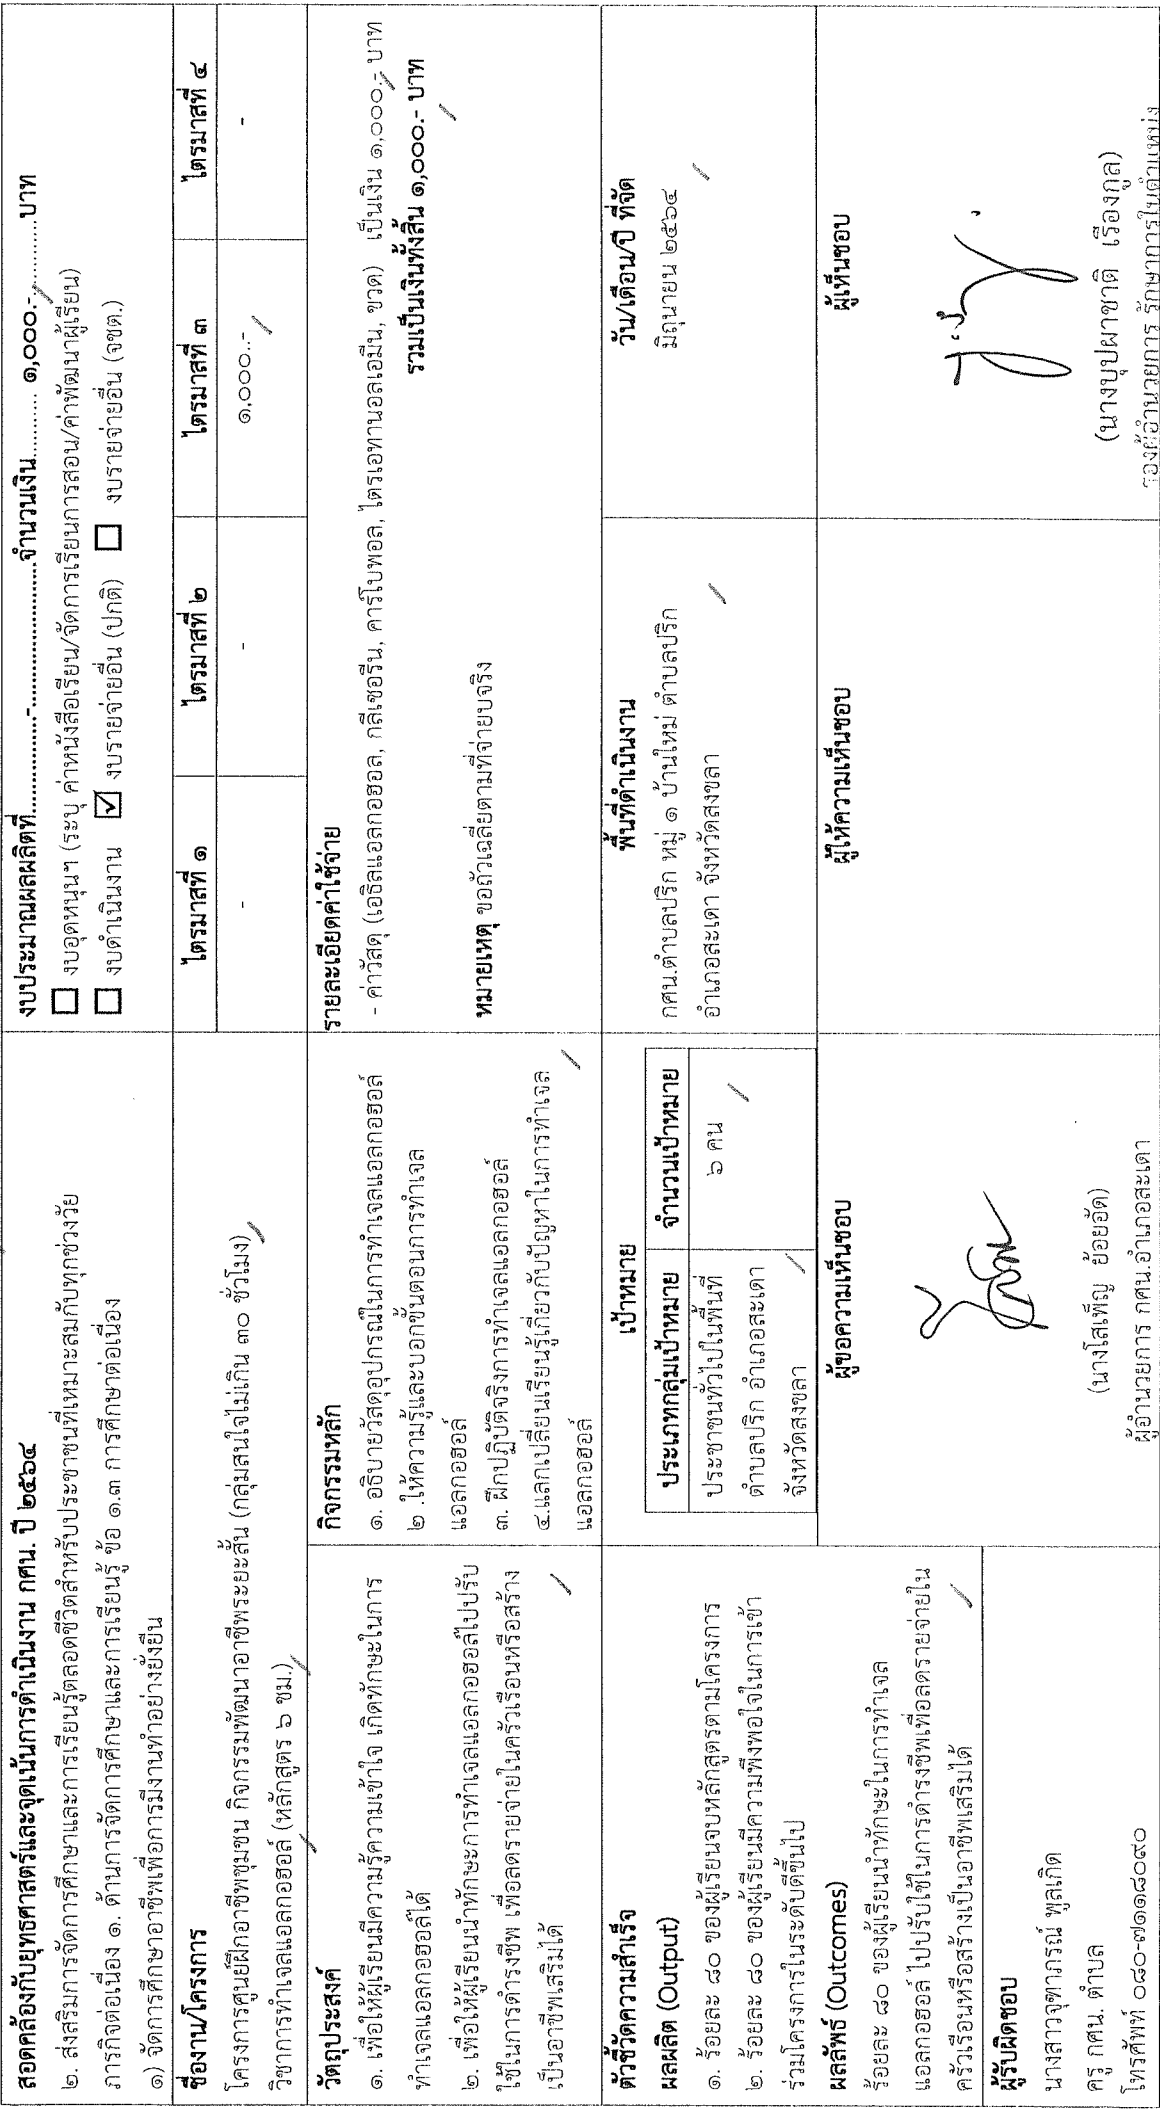 สอดคล้องกับยุทธศาสตร์และจุดเน้นการดำเนินงาน กศน. ปี ๒๕๖๔
๒. ส่งเสริมการจัดการศึกษาและการเรียนรู้ตลอดชีวิตสำหรับประชาชนที่เหมาะสมกับทุกช่วงวัย
ภารกิจต่อเนื่อง ๑. ด้านการจัดการศึกษาและการเรียนรู้ ข้อ ๑.๓ การศึกษาต่อเนื่อง
๑) จัดการศึกษาอาชีพเพื่อการมีงานทำอย่างยั่งยืน
งบประมาณผลผลิตที่................-........................จำนวนเงิน.......... ๑,๐๐๐.-............บาท
☐ งบอุดหนุนฯ (ระบุ ค่าหนังสือเรียน/จัดการเรียนการสอน/ค่าพัฒนาผู้เรียน)
☐ งบดำเนินงาน ☑ งบรายจ่ายอื่น (ปกติ) ☐ งบรายจ่ายอื่น (จชต.)
ชื่องาน/โครงการ
โครงการศูนย์ฝึกอาชีพชุมชน กิจกรรมพัฒนาอาชีพระยะสั้น (กลุ่มสนใจไม่เกิน ๓๐ ชั่วโมง)
วิชาการทำเจลแอลกอฮอล์ (หลักสูตร ๖ ชม.)
ไตรมาสที่ ๑ ไตรมาสที่ ๒ ไตรมาสที่ ๓ ไตรมาสที่ ๔
- - ๑,๐๐๐..- -
วัตถุประสงค์
๑. เพื่อให้ผู้เรียนมีความรู้ความเข้าใจ เกิดทักษะในการ
ทำเจลแอลกอฮอล์ได้
๒. เพื่อให้ผู้เรียนนำทักษะการทำเจลแอลกอฮอล์ไปปรับ
ใช้ในการดำรงชีพ เพื่อลดรายจ่ายในครัวเรือนหรือสร้าง
เป็นอาชีพเสริมได้
กิจกรรมหลัก
๑. อธิบายวัสดุอุปกรณ์ในการทำเจลแอลกอฮอล์
๒ .ให้ความรู้และบอกขั้นตอนการทำเจล
แอลกอฮอล์
๓. ฝึกปฏิบัติจริงการทำเจลแอลกอฮอล์
๔.แลกเปลี่ยนเรียนรู้เกี่ยวกับปัญหาในการทำเจล
แอลกอฮอล์
รายละเอียดค่าใช้จ่าย
- ค่าวัสดุ (เอธิลแอลกอฮอล, กลีเซอรีน, คาร์โบพอล, ไตรเอทานอลเอมีน, ขวด) เป็นเงิน ๑,๐๐๐.- บาท
รวมเป็นเงินทั้งสิ้น ๑,๐๐๐.- บาท
หมายเหตุ ขอถัวเฉลี่ยตามที่จ่ายบจริง
ตัวชี้วัดความสำเร็จ
ผลผลิต (Output)
๑. ร้อยละ ๘๐ ของผู้เรียนจบหลักสูตรตามโครงการ
๒. ร้อยละ ๘๐ ของผู้เรียนมีความพึงพอใจในการเข้า
ร่วมโครงการในระดับดีขึ้นไป
ผลลัพธ์ (Outcomes)
ร้อยละ ๘๐ ของผู้เรียนนำทักษะในการทำเจล
แอลกอฮอล์ ไปปรับใช้ในการดำรงชีพเพื่อลดรายจ่ายใน
ครัวเรือนหรือสร้างเป็นอาชีพเสริมได้
เป้าหมาย
ประเภทกลุ่มเป้าหมาย จำนวนเป้าหมาย
ประชาชนทั่วไปในพื้นที่ ๖ คน
ตำบลปริก อำเภอสะเดา
จังหวัดสงขลา
พื้นที่ดำเนินงาน
กศน.ตำบลปริก หมู่ ๑ บ้านใหม่ ตำบลปริก
อำเภอสะเดา จังหวัดสงขลา
วัน/เดือน/ปี ที่จัด
มิถุนายน ๒๕๖๔
ผู้รับผิดชอบ
นางสาวจุฑาภรณ์ พูลเกิด
ครู กศน. ตำบล
โทรศัพท์ ๐๘๐-๗๑๑๘๐๙๐
ผู้ขอความเห็นชอบ
(นางโสเพ็ญ ย้อยอัด)
ผู้อำนวยการ กศน.อำเภอสะเดา
ผู้ให้ความเห็นชอบ
ผู้เห็นชอบ
(นางบุปผาชาติ เรืองกูล)
รองผู้อำนวยการ รักษาการในตำแหน่ง